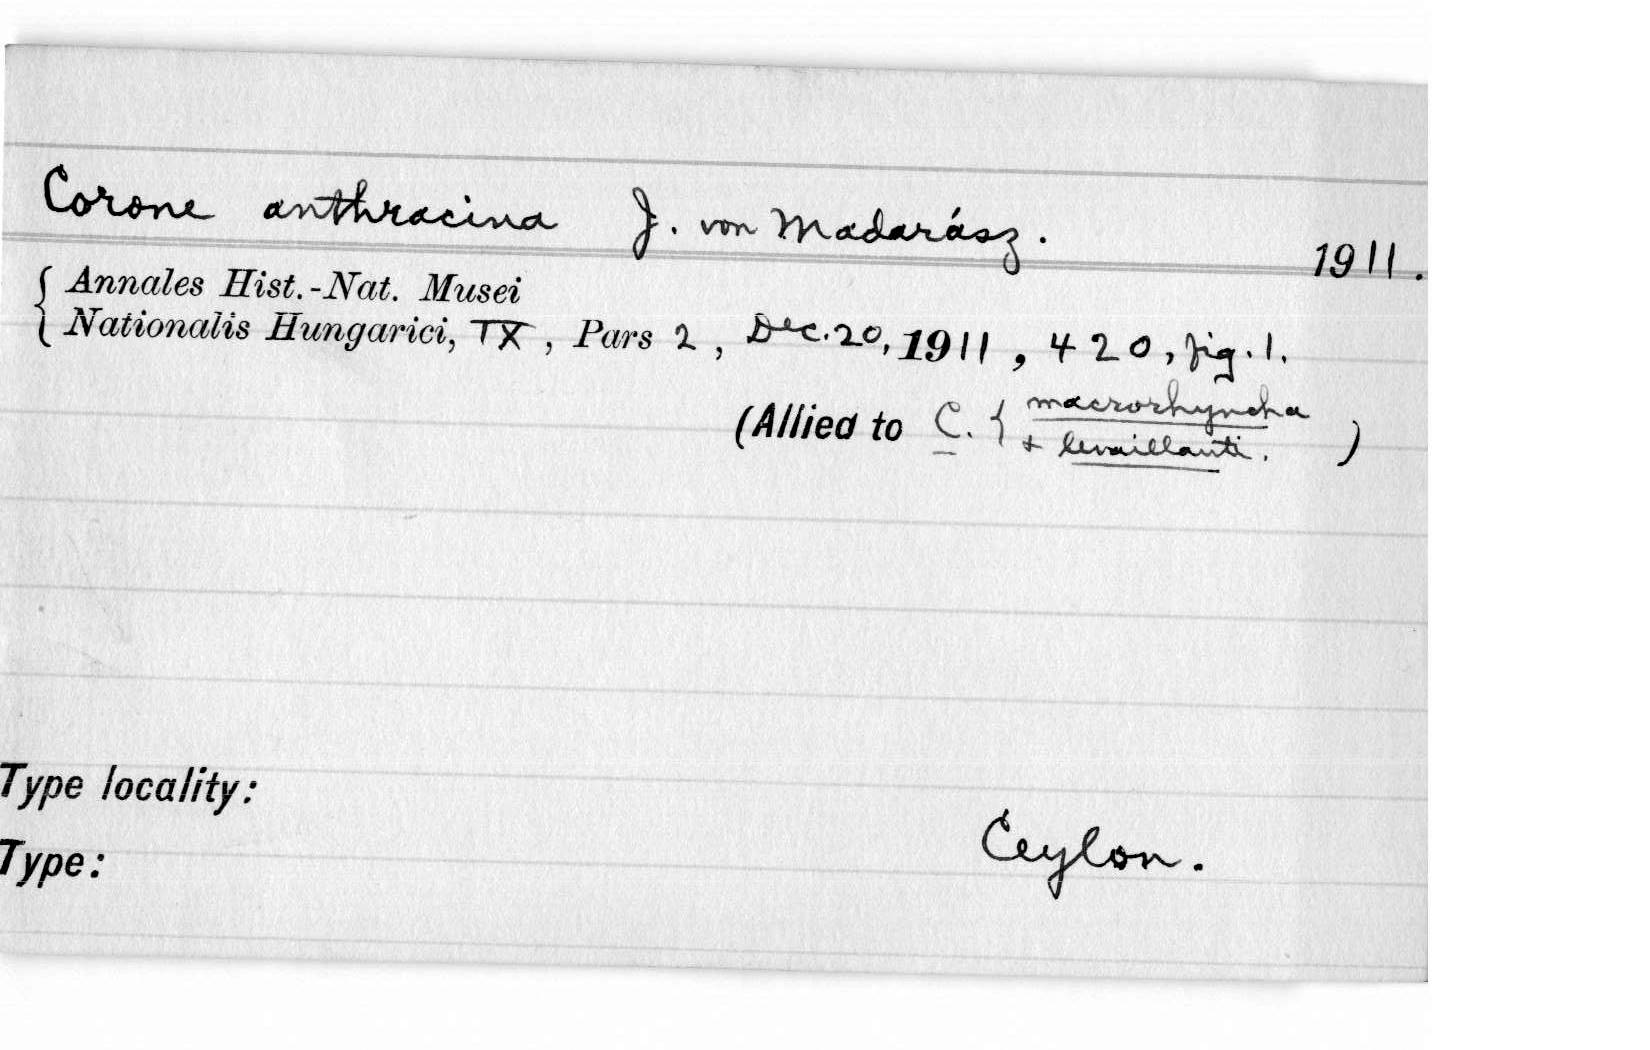 Corone anthracina J. von Madarász. 1911.
{ Annales Hist.-Nat. Musei
Nationalis Hungarici, IX, Pars 2, Dec. 20, 1911, 420, fig. 1.
(Allied to C. { macrorhyncha
+ levaillanti. )
Type locality:
Ceylon.
Type: